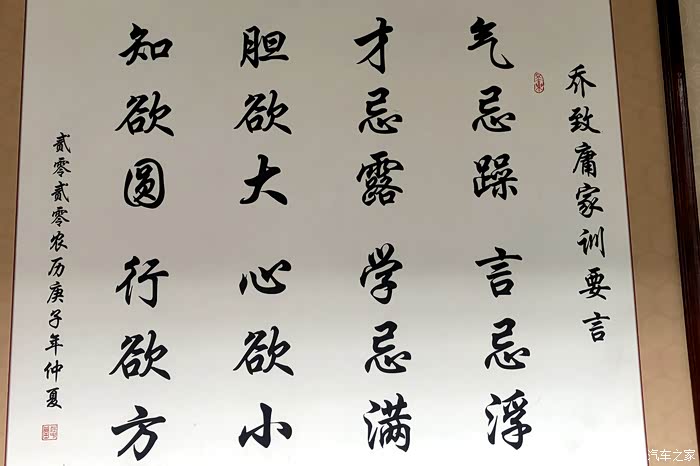 乔致庸家训要言
气忌躁言忌浮
才忌露学忌满
胆欲大心欲小
知欲圆行欲方
贰零贰零农历庚子年仲夏
汽车之家